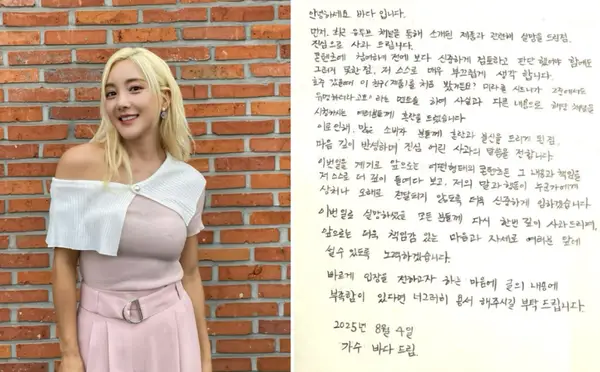 안녕하세요 바다 입니다.
먼저, 최근 유튜브 채널을 통해 소개된 제품과 관련해 실망을 드린점,
진심으로 사과 드립니다.
콘텐츠에 참여하기 전에 보다 신중하게 검토하고 판단 했어야 함에도
그러지 못한 점, 저 스스로 매우 부끄럽게 생각 합니다.
호주 있을때 이 친구(제품)를 처음 봤거든요? 미라클 시드니가 2존에서도
유명하더라구요" 하는 멘트를 하여 사실과 다른 내용으로 해당 채널을
시청하는 여러분들께 혼란을 드렸습니다
이로인해, 많은 소비자 분들께 혼란과 불신을 드리게 된점,
마음 깊이 반성하며 진심 어린 사과의 말씀을 전합니다.
이번일을 계기로 앞으로는 어떤형태의 콘텐츠든 그 내용과 책임을
저 스스로 더 깊이 들여다 보고, 저의 말과 행동이 누군가에게
상처나 오해로 전달되지 않도록 더욱 신중하게 임하겠습니다
이번일로 실망하셨을 모든 분들께 다시 한번 깊이 사과드리며,
앞으로는 더욱 책임감 있는 마음과 자세로 여러분 앞에
설수 있도록 노력하겠습니다.
바르게 입장을 전하고자 하는 마음에 글의 내용에
부족함이 있다면 너그러히 용서 해주시길 부탁 드립니다.
2025년 8월 4일
가수 바다 드림.